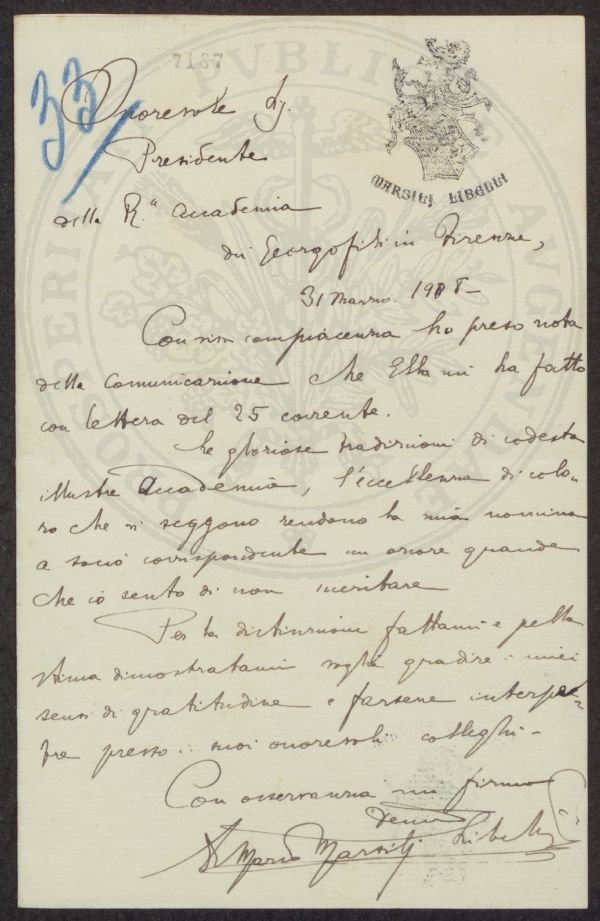 7187
33
Onorevole Sig.
Presidente
MARSILJ LIBELLI
della R.ª Accademia
dei Georgofili in Firenze,
31 Marzo 1908 -
Con viva compiacenza ho preso nota
della comunicazione che Ella mi ha fatto
con lettera del 25 corrente.
Le gloriose tradizioni di codesta
illustre Accademia, l'eccellenza di colo-
ro che vi seggono rendono la mia nomina
a socio corrispondente un onore grande
che io sento di non meritare
Per la distinzione fattami e pella
stima dimostratami voglia gradire i miei
sensi di gratitudine e farsene interpe-
tre presso i suoi onorevoli colleghi -
Con osservanza mi firmo
Mario Marsilj Libelli
PROSPERITATI PVBLICAE AVGENDAE